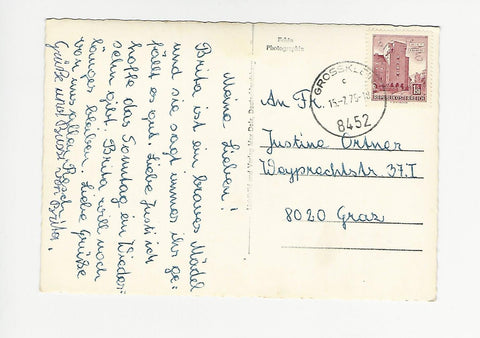 Meine Lieben!
Brita ist ein braves Mädel
und sie sagt immer ihr ge-
fällt es gut. Liebe Justi ich
hoffe das Sonntag ein Wieder-
sehn gibt. Brita will noch
länges bleiben. Liebe Grüße
von uns allen
Grüße und Bussi von Brita.
Echte
Photographie
GROSSKL
15.-7.75-1
c
8452
REPUBLIK ÖSTERREICH
An Fr.
Justine Ortner
Weyprechtstr. 37.I
8020 Graz